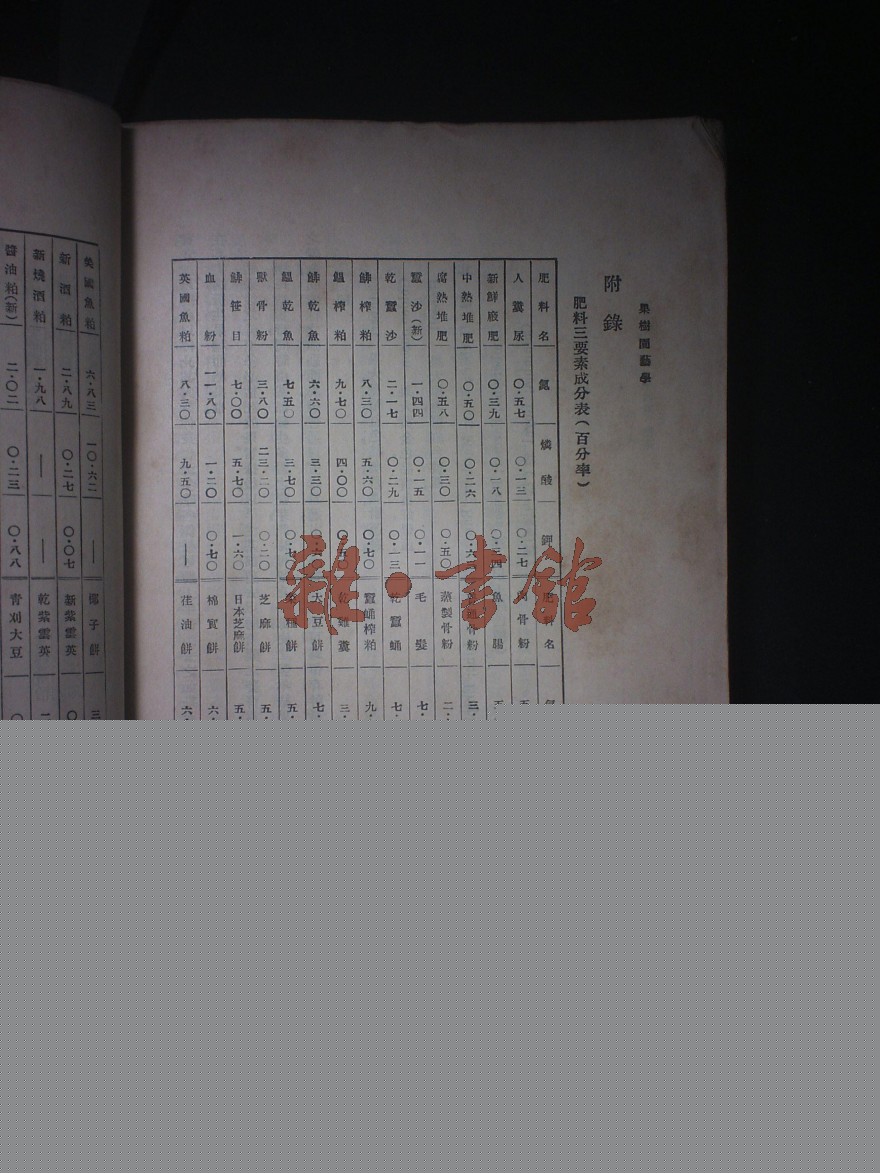 果樹園藝學
附錄
肥料三要素成分表(百分率)
肥料名 氮 燐酸 鉀 肥料名
人糞尿 〇·五七 〇·一三 〇·二七 肉骨粉 五
新鮮廐肥 〇·三九 〇·一八 魚腸
中熟堆肥 〇·五〇 〇·二六 骨粉 三·
腐熟堆肥 〇·五八 〇·三〇 〇·五〇 蒸製骨粉 二·
蠶沙(新) 一·四四 〇·一五 〇·一一 毛髮 七·
乾蠶沙 二·一七 〇·二九 〇·一三 乾蠶蛹 七·
鯡榨粕 八·三〇 五·六〇 〇·七〇 蠶蛹榨粕 九·
鰮榨粕 九·七〇 四·〇〇 〇·五〇 乾雞糞 三·
鯡乾魚 六·六〇 三·三〇 大豆餅 七·
鰮乾魚 七·五〇 三·七〇 〇·七〇 餅 五·
獸骨粉 三·八〇 二三·二〇 〇·二〇 芝麻餅 五·
鯡笹目 七·〇〇 五·七〇 一·六〇 日本芝麻餅 五·
血粉 一一·八〇 一·二〇 〇·七〇 棉實餅 六·
英國魚粕 八·三〇 九·五〇 — 荏油餅 六·
美國魚粕 六·八三 一〇·六二 — 椰子餅 三
新酒粕 二·八九 〇·二七 〇·〇七 新紫雲英 〇
新燒酒粕 一·九八 — — 乾紫雲英 二
醬油粕(新) 二·〇二 〇·二三 〇·八八 青刈大豆 〇
雜·書館